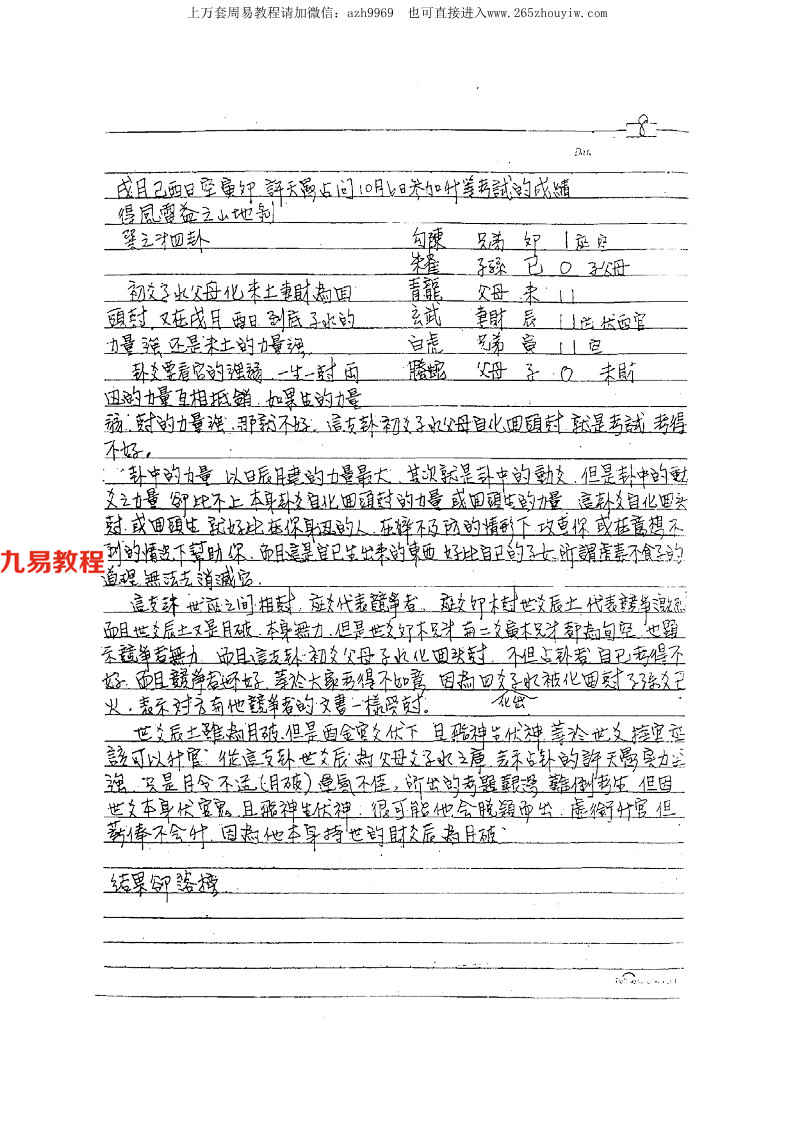 上万套周易教程请加微信：azh9969　也可直接进入www.265zhouyiw.com
8
戌月己酉日空寅卯 許天勇占问10月6日参加升等考試的成績
得風雷益之山地剝
巽之才四卦　勾陳 兄弟 卯 1 应空
朱雀 子孫 巳 0 子父母
初爻子水父母化未土妻財為回　青龍 父母 未 11
頭尅，又在戌月酉日到底子水的　玄武 妻財 辰 11 世伏酉官
力量强，还是未土的力量强。　白虎 兄弟 寅 11 空
卦爻要看它的强弱，一生一尅两　螣蛇 父母 子 0 未财
的力量互相抵銷，如果生的力量
弱，尅的力量强，那就不好。這支卦初爻子水父母自化回頭尅 就是考試考得
不好。
卦中的力量，以日辰月建的力量最大，其次就是卦中的動爻，但是卦中的動
爻之力量 卻比不上本身卦爻自化回頭尅的力量或回頭生的力量，這卦爻自化回头
尅或回頭生 就好比在你身边的人，在猝不及防的情形下攻擊你 或在意想不
到的情况下幫助你，而且這是自己生出來的東西 好比自己的子女，所謂虎毒不食子的
道理，無法去消滅它。
九易教程
這支卦 世应之间相尅，应爻代表競争者，应爻卯木尅世爻辰土，代表競争激烈
而且世爻辰土又是月破，本身無力，但是世爻卯木兄弟有二爻寅木兄弟都為旬空，也顯
示競争者無力，而且這支卦，初爻父母子水化回头尅，不但占卦者自己考得不
好，而且競争者也不好，等於大家考得不如意，因為四爻子水被化回尅了子孫爻巳
化出
火，表示对方有他競争者的文書一樣受尅。
世爻辰土雖為月破，但是酉金官爻伏下，且飛神生伏神，等於世爻持官 应
該可以升官，從這支卦世爻辰為父母爻子水之庫，表示占卦的許天勇实力
强，只是月令不逢(月破)運氣不佳，所出的考題艱澀 難倒考生，但因
世爻本身伏官鬼，且飛神生伏神，很可能他会脱颖而出，虚銜升官，但
薪俸不会升，因為他本身持世的財爻辰為月破
結果卻落榜